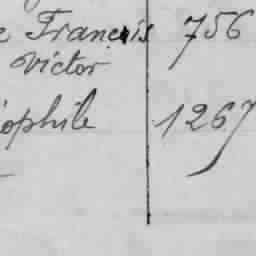 e François 756
Victor
ophile 1267